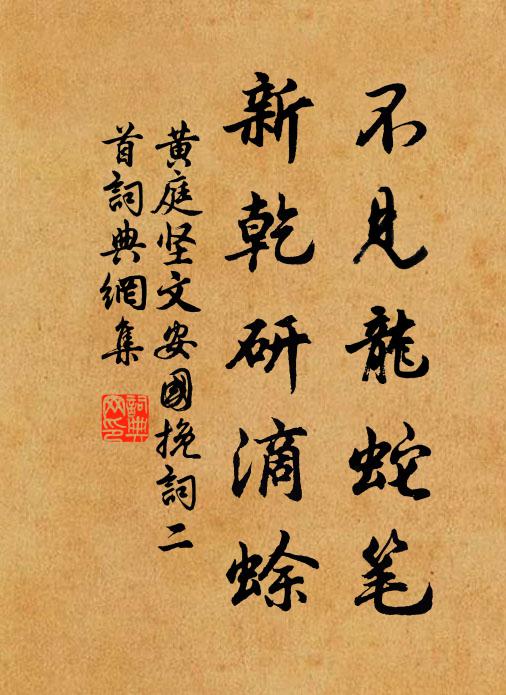 不見龍蛇笔
新乾研滴蜍
黄庭坚文安國挽詞二
首詞典網集
詞典
网印